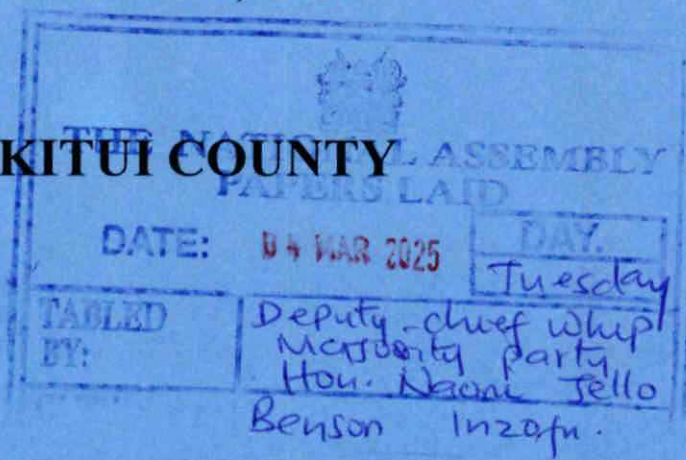 KITUI COUNTY
THE NATIONAL ASSEMBLY
PAPERS LAID
DATE: 04 MAR 2025
DAY.
Tuesday
TABLED
BY:
Deputy chief whip
Majority party
Hon. Naomi Jello
Benson Inzofu.